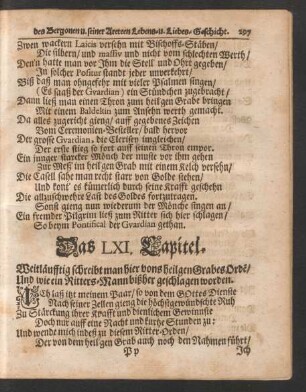 des Bergonen u. seiner Areteen Lebens- u. Liebes-Geschicht. 297
Zween wackern Laicis versehn mit Bischoffs-Stäben/
Die silbern/ und massiv und nicht vom schlechten Werth/
Den'n hatte man vor Jhm die Stell' und Ohrt gegeben/
Jn solcher Positur standt jeder unverkehrt/
Biß daß man ohngefehr mit vieler Psalmen singen/
(Es saaß der Gvardian) ein Stündchen zugebracht/
Dann ließ man einen Thron zum heilgen Grabe bringen
Mit einem Baldekin zum Ansehn werth gemacht.
Da alles zugericht gieng/ auff gegebnes Zeichen
Vom Ceremonien-Besteller/ bald hervor
Der grosse Gvardian, die Clerisey imgleichen/
Der erste stieg so fort auff seinen Thron empor.
Ein junger starcker Mönch der muste vor ihm gehen
Zur Meß im heilgen Grab mit einem Kelch versehn/
Die Casell sahe man recht starr von Golde stehen/
Und kont' es kümerlich durch seine Krafft geschehn
Die allzuschwehre Last des Goldes fortzutragen.
Sonst gieng nun wiederum der Mönche singen an/
Ein fremder Pilgrim ließ zum Ritter sich hier schlagen/
So beym Pontifical der Gvardian gethan.
Das LXI. Capitel.
Weitläufftig schreibt man hier vons heilgen Grabes Ordē/
Und wie ein Ritters-Mann bißher geschlagen worden.
JCh laß itzt meinem Paar/ so von dem Gottes Dienste
Nach seiner Zellen gieng die höchstgewündschte Ruh
Zu Stärckung ihrer Krafft und dienlichem Gewinnste
Doch nur auff eine Nacht und kurtze Stunden zu:
Und wende mich indeß zu diesem Ritter-Orden/
Der von dem heilgen Grab auch noch den Nahmen führt/
P p
Jch